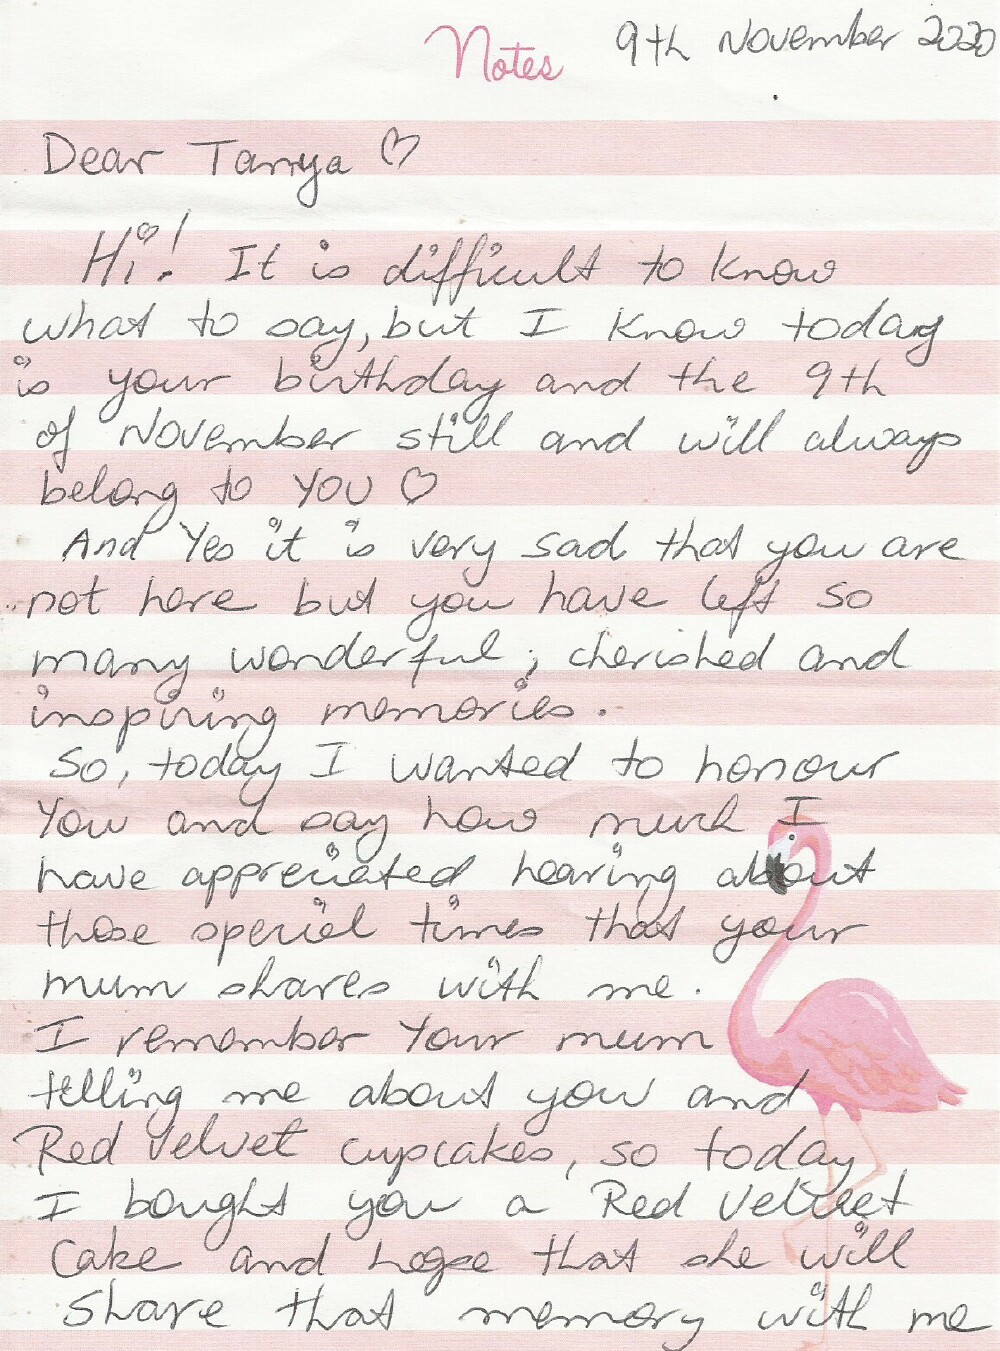 Notes
9th November 2020
Dear Tanya ♡
Hi! It is difficult to know
what to say, but I know today
is your birthday and the 9th
of November still and will always
belong to YOU ♡
And Yes it is very sad that you are
not here but you have left so
many wonderful, cherished and
inspiring memories.
So, today I wanted to honour
You and say how much I
have appreciated hearing about
those special times that your
mum shares with me.
I remember Your mum
telling me about you and
Red Velvet cupcakes, so today
I bought you a Red Velvet
Cake and hope that she will
share that memory with me